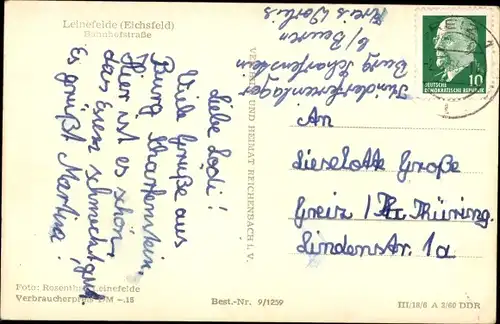 Leinefelde (Eichsfeld)
Bahnhofstraße
Kinderferienlager
Burg Scharfenstein
b/Beuren
Kreis Worbis
Liebe Lodi!
Viele Grüße aus
Burg Scharfenstein,
Hier ist es schön,
das Essen schmeckt gut.
Es grüßt Martina!
VERLAG UND HEIMAT REICHENBACH I. V.
10
DEUTSCHE
DEMOKRATISCHE REPUBLIK
An
Lieselotte Große
Greiz / Thüring.
Lindenstr. 1a
Foto: Rosenthal, Leinefelde
Verbraucherpreis DM -.15
Best.-Nr. 9/1259
III/18/6 A 2/60 DDR